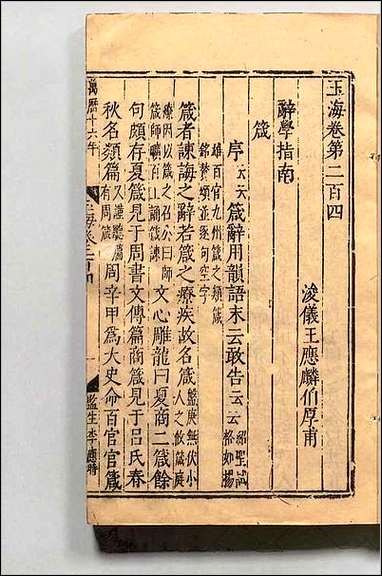 玉海卷第二百四
浚儀王應麟伯厚甫
辭學指南
箴
序云云箴辭用韻語末云敢告云云
紹聖試
格如揚
雄百官九州箴之類箴
銘贊頌並逐句空字
箴者諫誨之辭若箴之療疾故名箴
盤庚無伏小
人之攸箴庭
療因以箴之召公曰師
箴師曠百工誦箴諫
文心雕龍曰夏商二箴餘
句頗存夏箴見于周書文傳篇商箴見于呂氏春
秋名類篇
又謹聽篇
有周箴
周辛甲為大史命百官官箴
萬曆十六年
玉海卷二百四
監生李